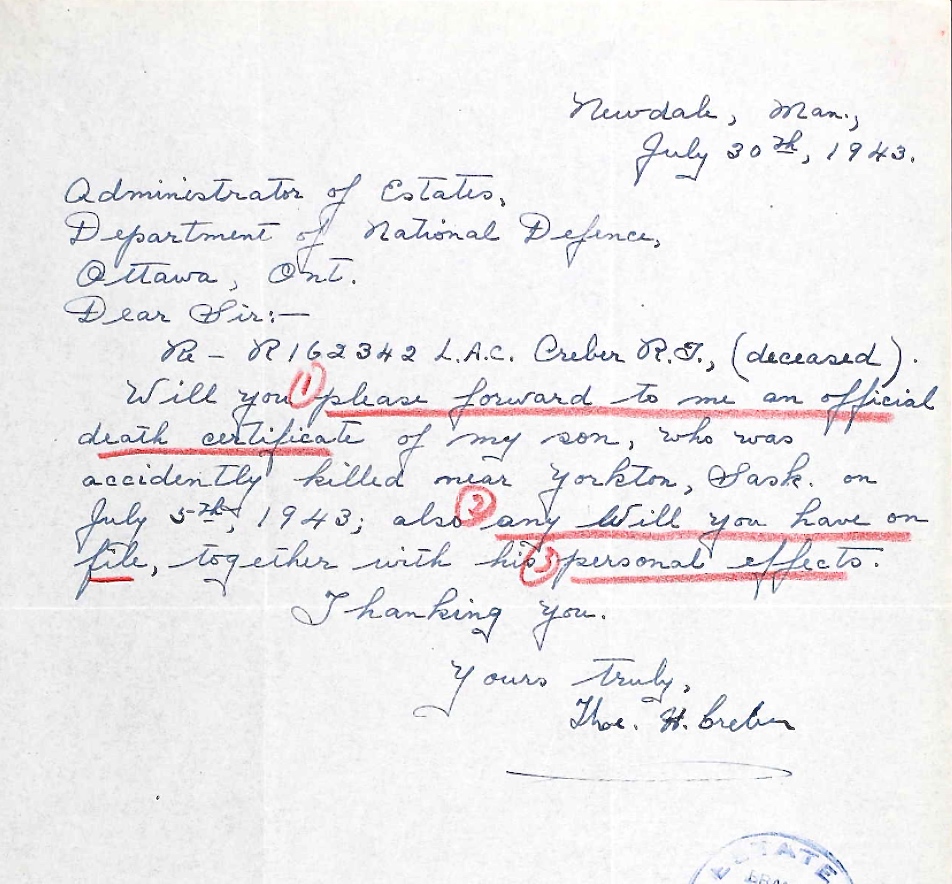 Newdale, Man.,
July 30th, 1943.
Administrator of Estates,
Department of National Defence,
Ottawa, Ont.
Dear Sir:—
Re – R162342 L.A.C. Creber R.T., (deceased).
Will you (1) please forward to me an official
death certificate of my son, who was
accidently killed near Yorkton, Sask. on
July 5th, 1943; also (2) any Will you have on
file, together with his (3) personal effects.
Thanking you.
Yours truly,
Thos. H. Creber
ESTATE